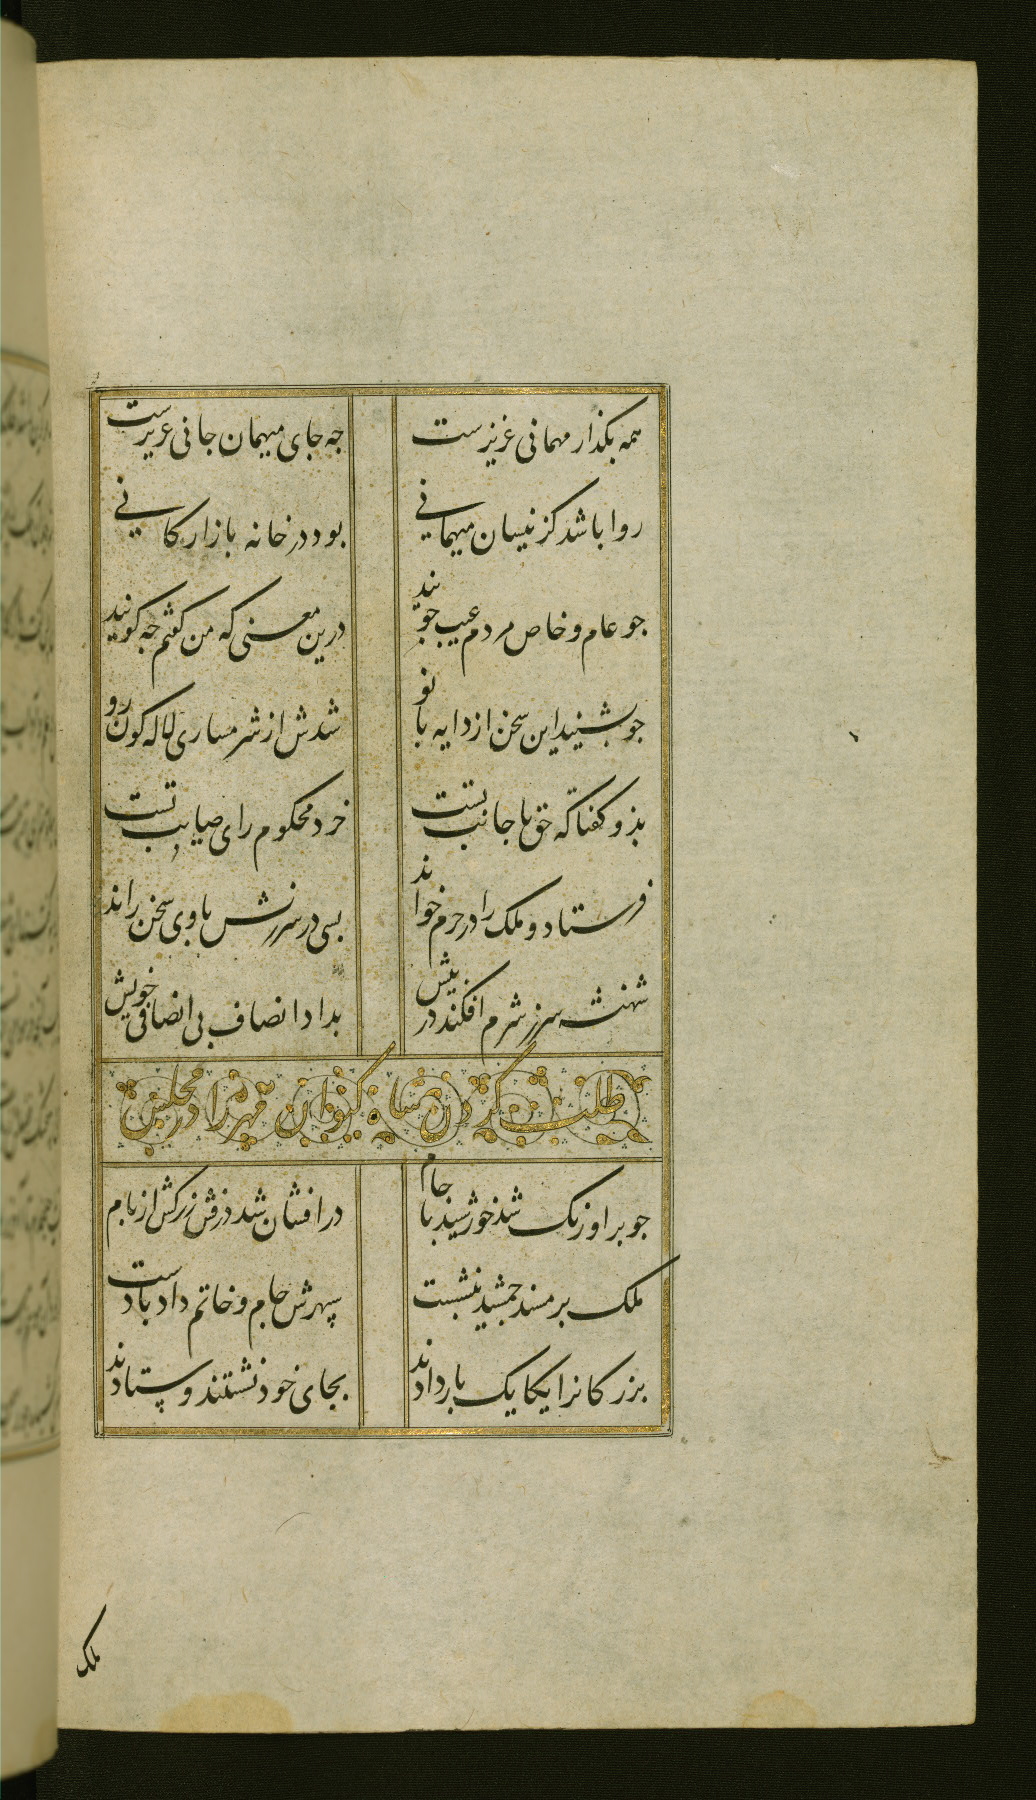 همه بکذار مهمانی عزیزست جه جای میهمان جانی عزیزست
روا باشد کزینسان میهمانی بود در خانه بازارکانی
جو عام و خاص مردم عیب جویند درین معنی که من کفتم جه کویند
جو بشنید این سخن از دایه بانو شدش از شرمساری لاله کون رو
بذو کفتا که حق با جانب تست خرد محکوم رای صایب تست
فرستاد و ملک را در حرم خواند بسی در سرزنش با وی سخن راند
شهنشه سر ز شرم افکند در پیش بداد انصاف بی انصافی خویش
طلب کردن شاه کیوان مهر را در مجلس
جو بر اورنک شذ خورشید با جام درافشان شد درفش زرکش از بام
ملک بر مسند جمشید بنشست سپهرش جام و خاتم داد بادست
بزرکانرا یکایک بار دادند بجای خود نشستند و ستادند
ملک